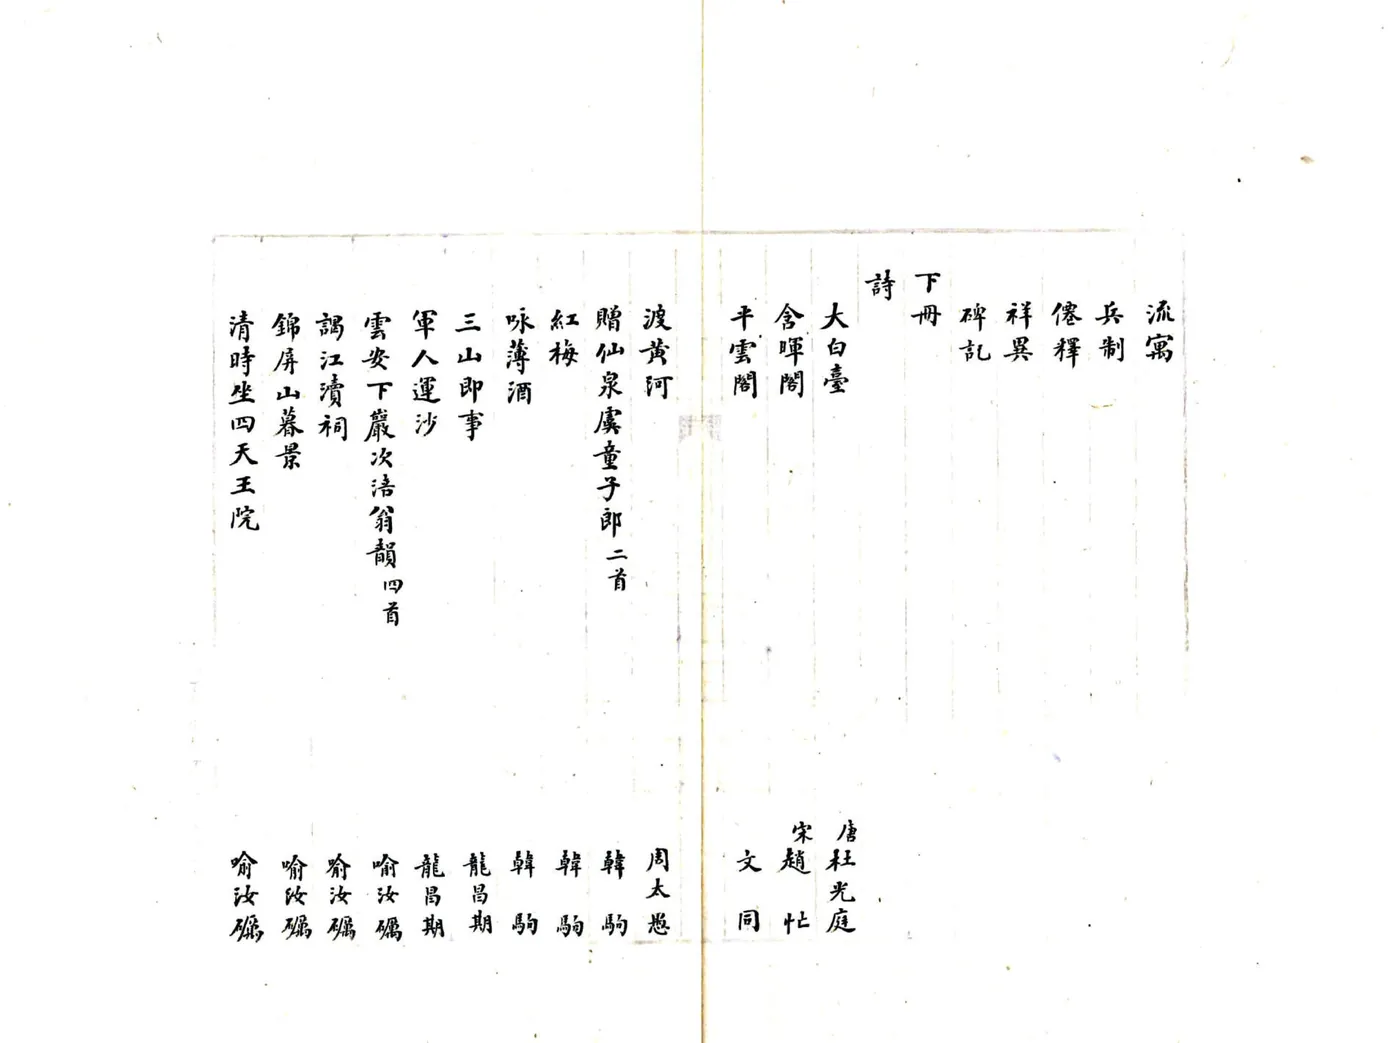 流寓
兵制
僊釋
祥異
碑記
下冊
詩
大白臺 唐杜光庭
含暉閣 宋趙忙
平雲閣 文同
渡黃河 周太愚
贈仙泉虞童子郎二首 韓駒
紅梅 韓駒
咏薄酒 韓駒
三山即事 龍昌期
軍人運沙 龍昌期
雲安下巖次涪翁韻四首 喻汝礪
謁江瀆祠 喻汝礪
錦屏山暮景 喻汝礪
清時坐四天王院 喻汝礪